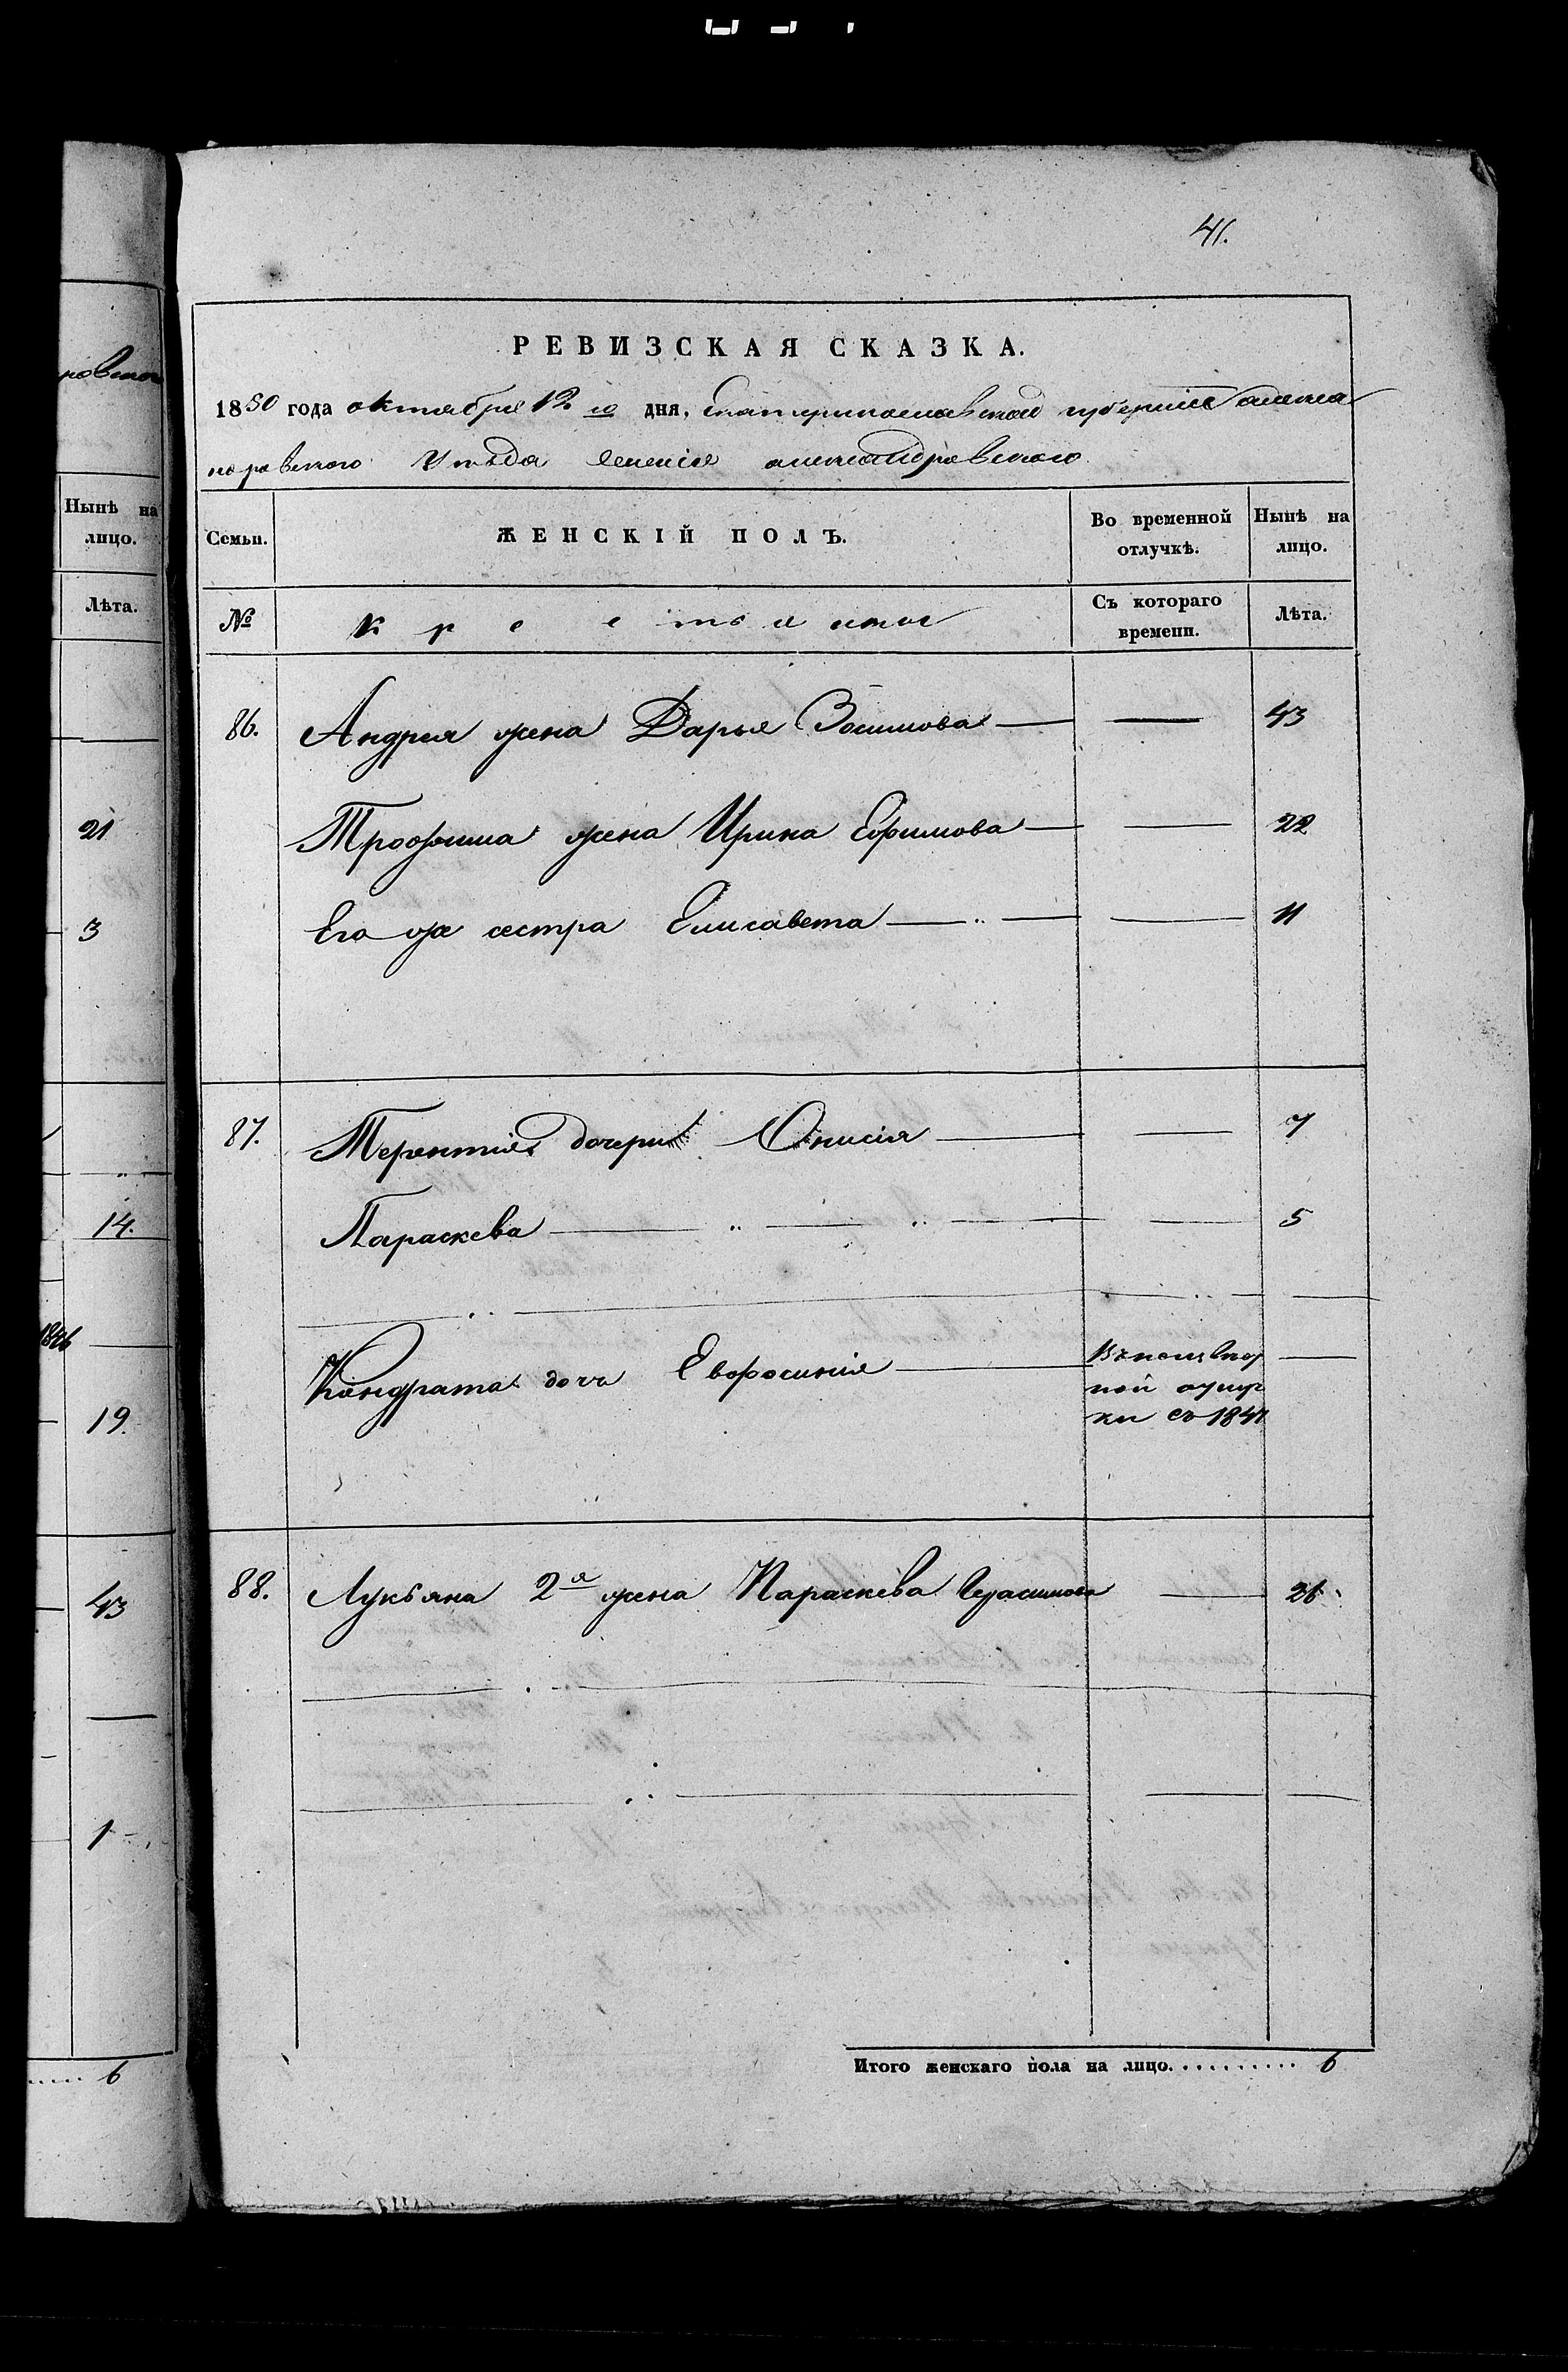 ровского
Нынѣ на
лицо.
Лѣта.
21
3
14.
1846
19.
43
1
6
41.
РЕВИЗСКАЯ СКАЗКА.
1850 года октября 12 го дня, Екатеринославской губернии алекса
ндровского уѣзда селенія александровского
Семьи. ЖЕНСКІЙ ПОЛЪ. Во временной отлучкѣ. Нынѣ на лицо.
№ крестьянъ Съ котораго времени. Лѣта.
86. Андрея жена Дарья Зосимова — — 43
Трофима жена Ирина Ефимова — — 22
Его же сестра Елисавета — „ — — 11
87. Терентія дочери Онисія — — 7
Параскева — „ — „ — — 5
Кондрата дочь Евфросинія — —
с 1841
88. Лукьяна 2я жена Параскева Герасимова — 26
Итого женскаго пола на лицо.......... 6